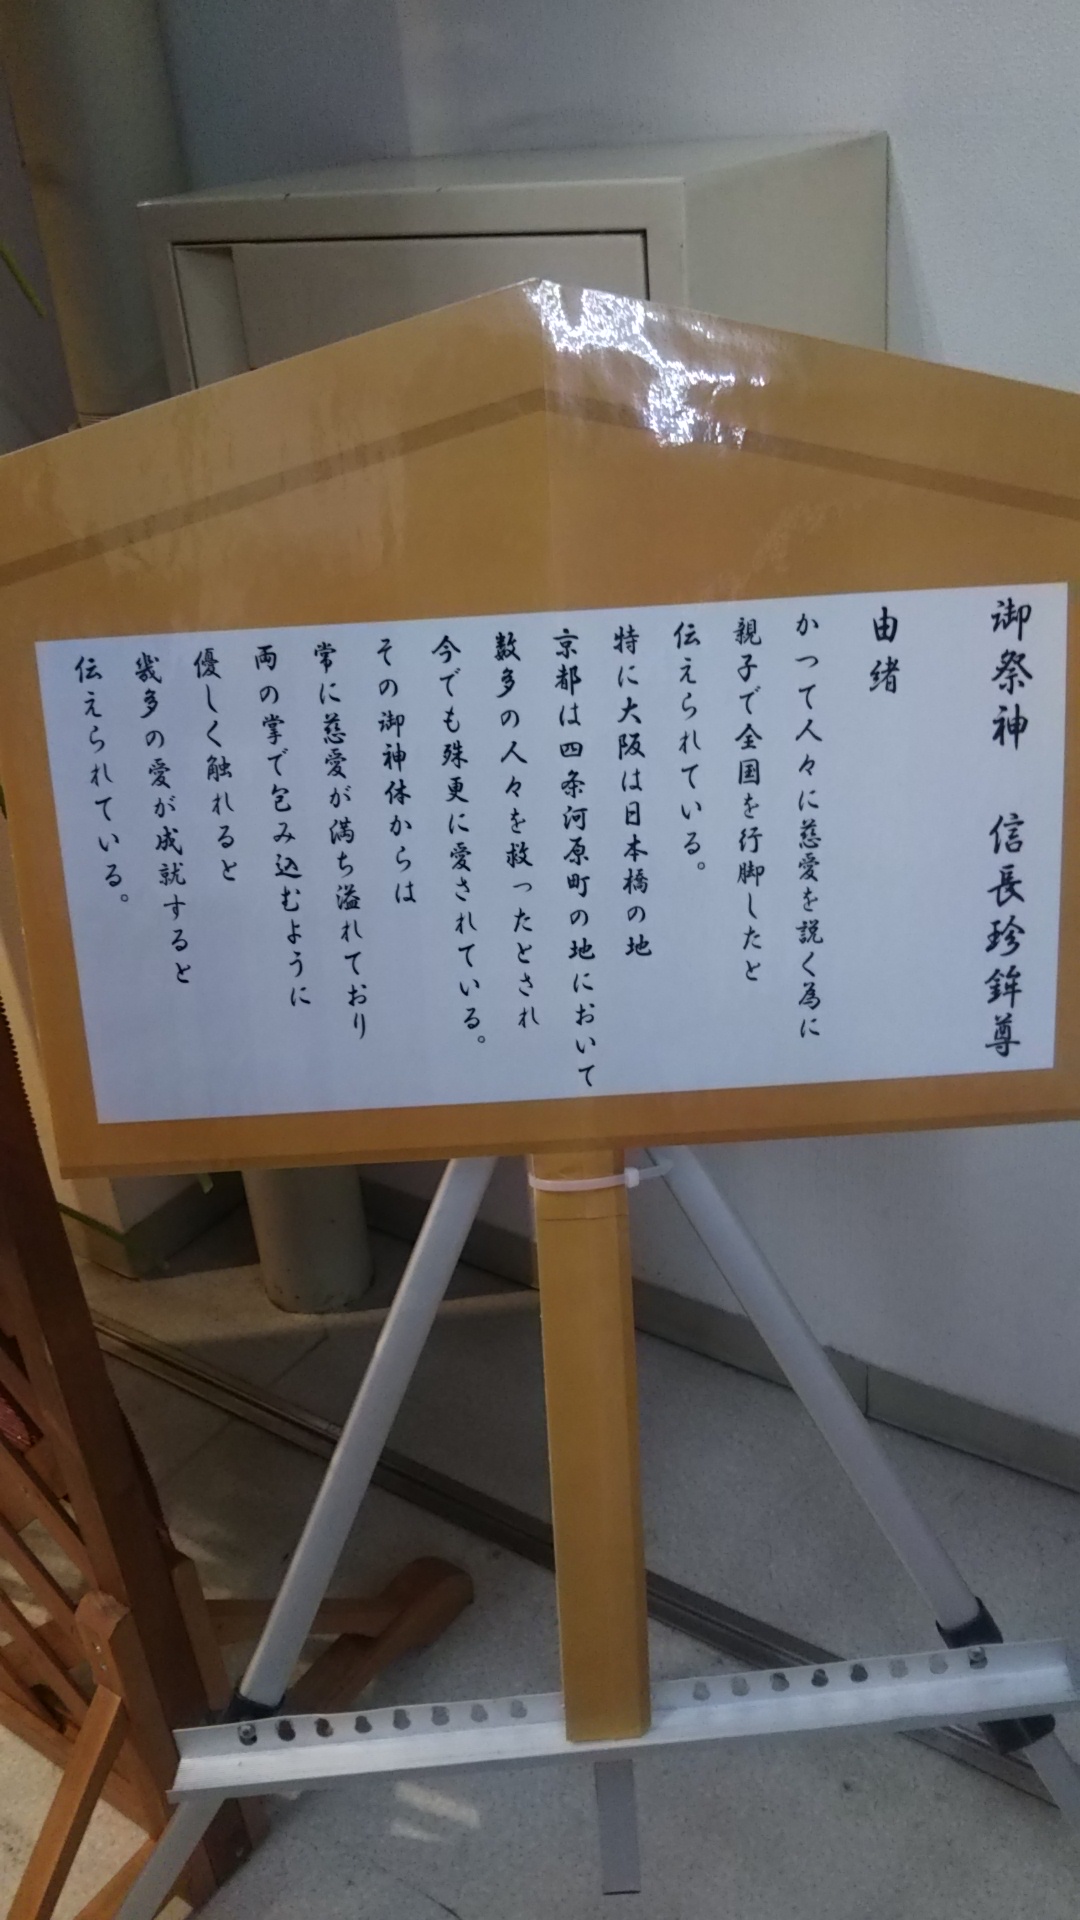 御祭神　信長珍鉾尊
由緒
かつて人々に慈愛を説く為に
親子で全国を行脚したと
伝えられている。
特に大阪は日本橋の地
京都は四条河原町の地において
数多の人々を救ったとされ
今でも殊更に愛されている。
その御神体からは
常に慈愛が満ち溢れており
両の掌で包み込むように
優しく触れると
幾多の愛が成就すると
伝えられている。